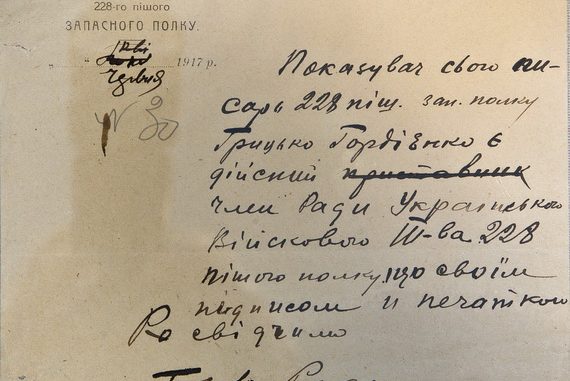 228-го пішого
ЗАПАСНОГО ПОЛКУ.
" " 1917 р.
Червня
№ 30
Показувач сього пи-
сарь 228 піш. зап. полку
Грицько Гордієнко є
дійсний приставник
член Ради Українського
Військового Т-ва 228
пішого полку, що своїм
підписом и печаткою
Ро свідчимо